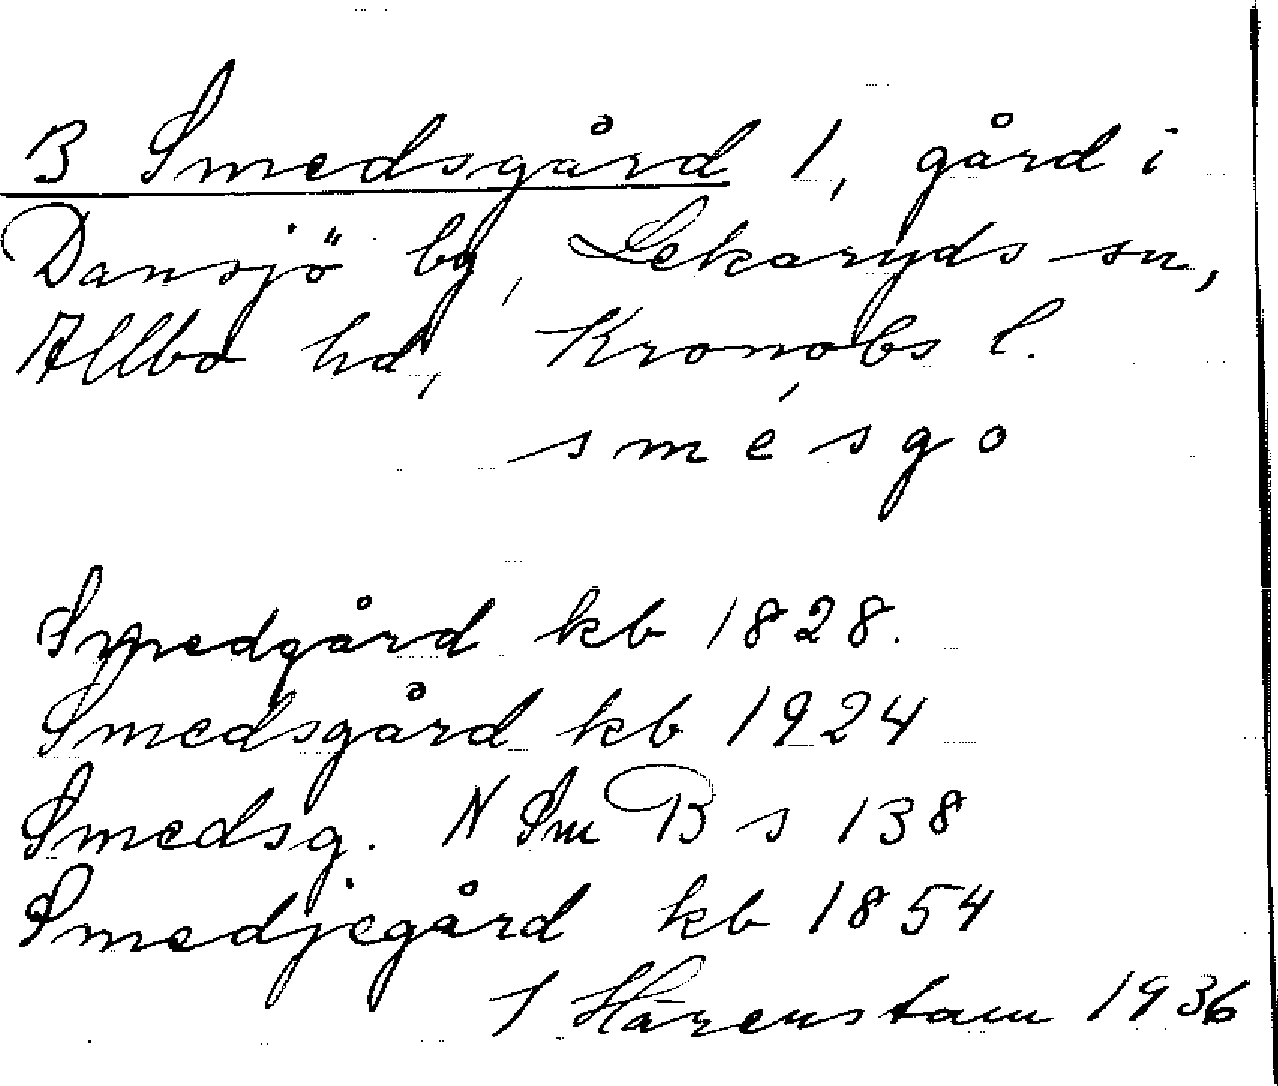 B Smedsgård 1, gård i
Dansjö by, Lekaryds sn,
Allbo hd, Kronobs l.
smésgo
Smedgård kb 1828.
Smedsgård kb 1924
Smedsg. N Sm B s 138
Smedjegård kb 1854
I Härenstam 1936